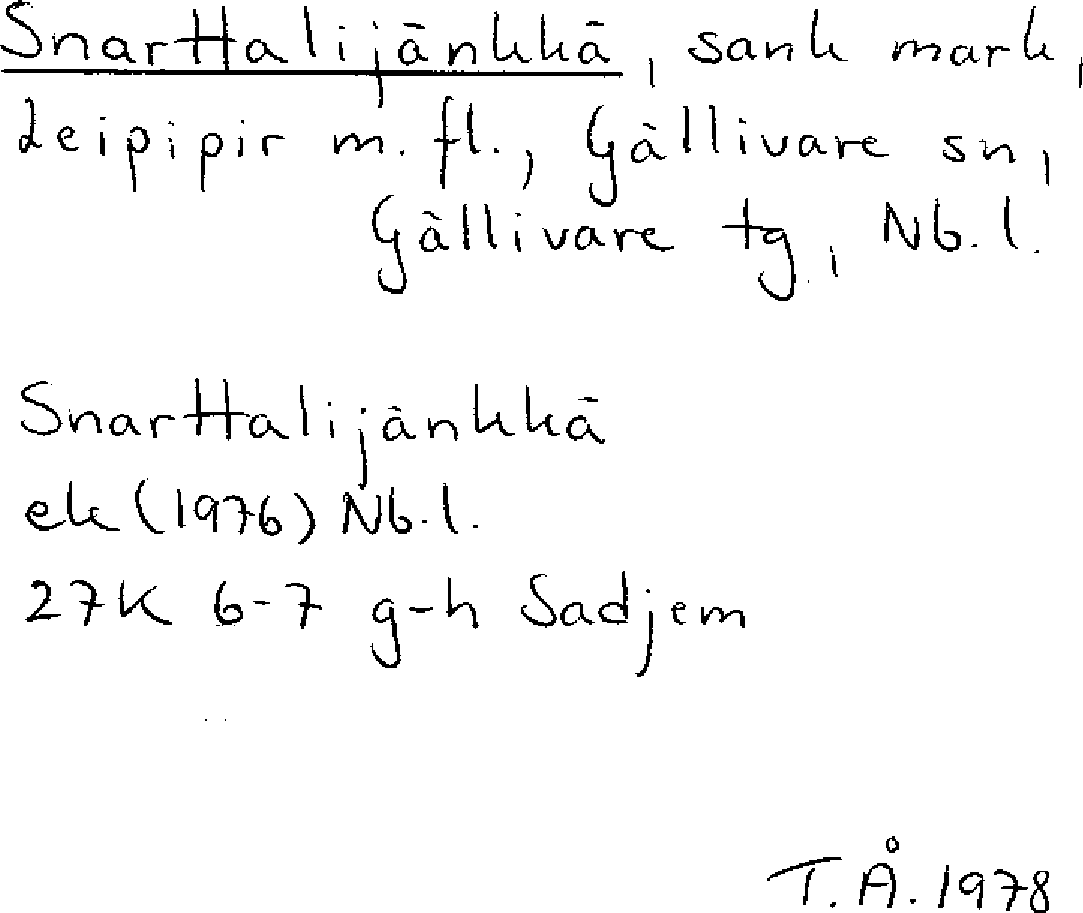 Snarttalijänkkä, sank mark,
Leipipir m. fl., Gällivare sn,
Gällivare tg, Nb. l.
Snarttalijänkkä
ek (1976) Nb. l.
27K 6-7 g-h Sadjem
T. Å. 1978